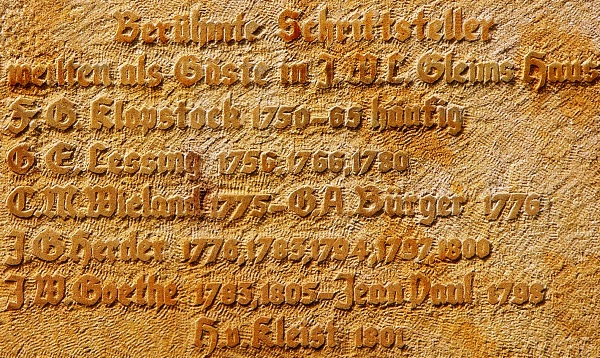 Berühmte Schriftsteller
weilten als Gäste in J.W.L. Gleims Haus
F.G. Klopstock 1750–65 häufig
G.E. Lessing 1756,1766,1780
C.M. Wieland 1775–G.A. Bürger 1776
J.G. Herder 1776,1783,1794,1797,1800
J.W. Goethe 1783,1805–Jean Paul 1798
H.v. Kleist 1801